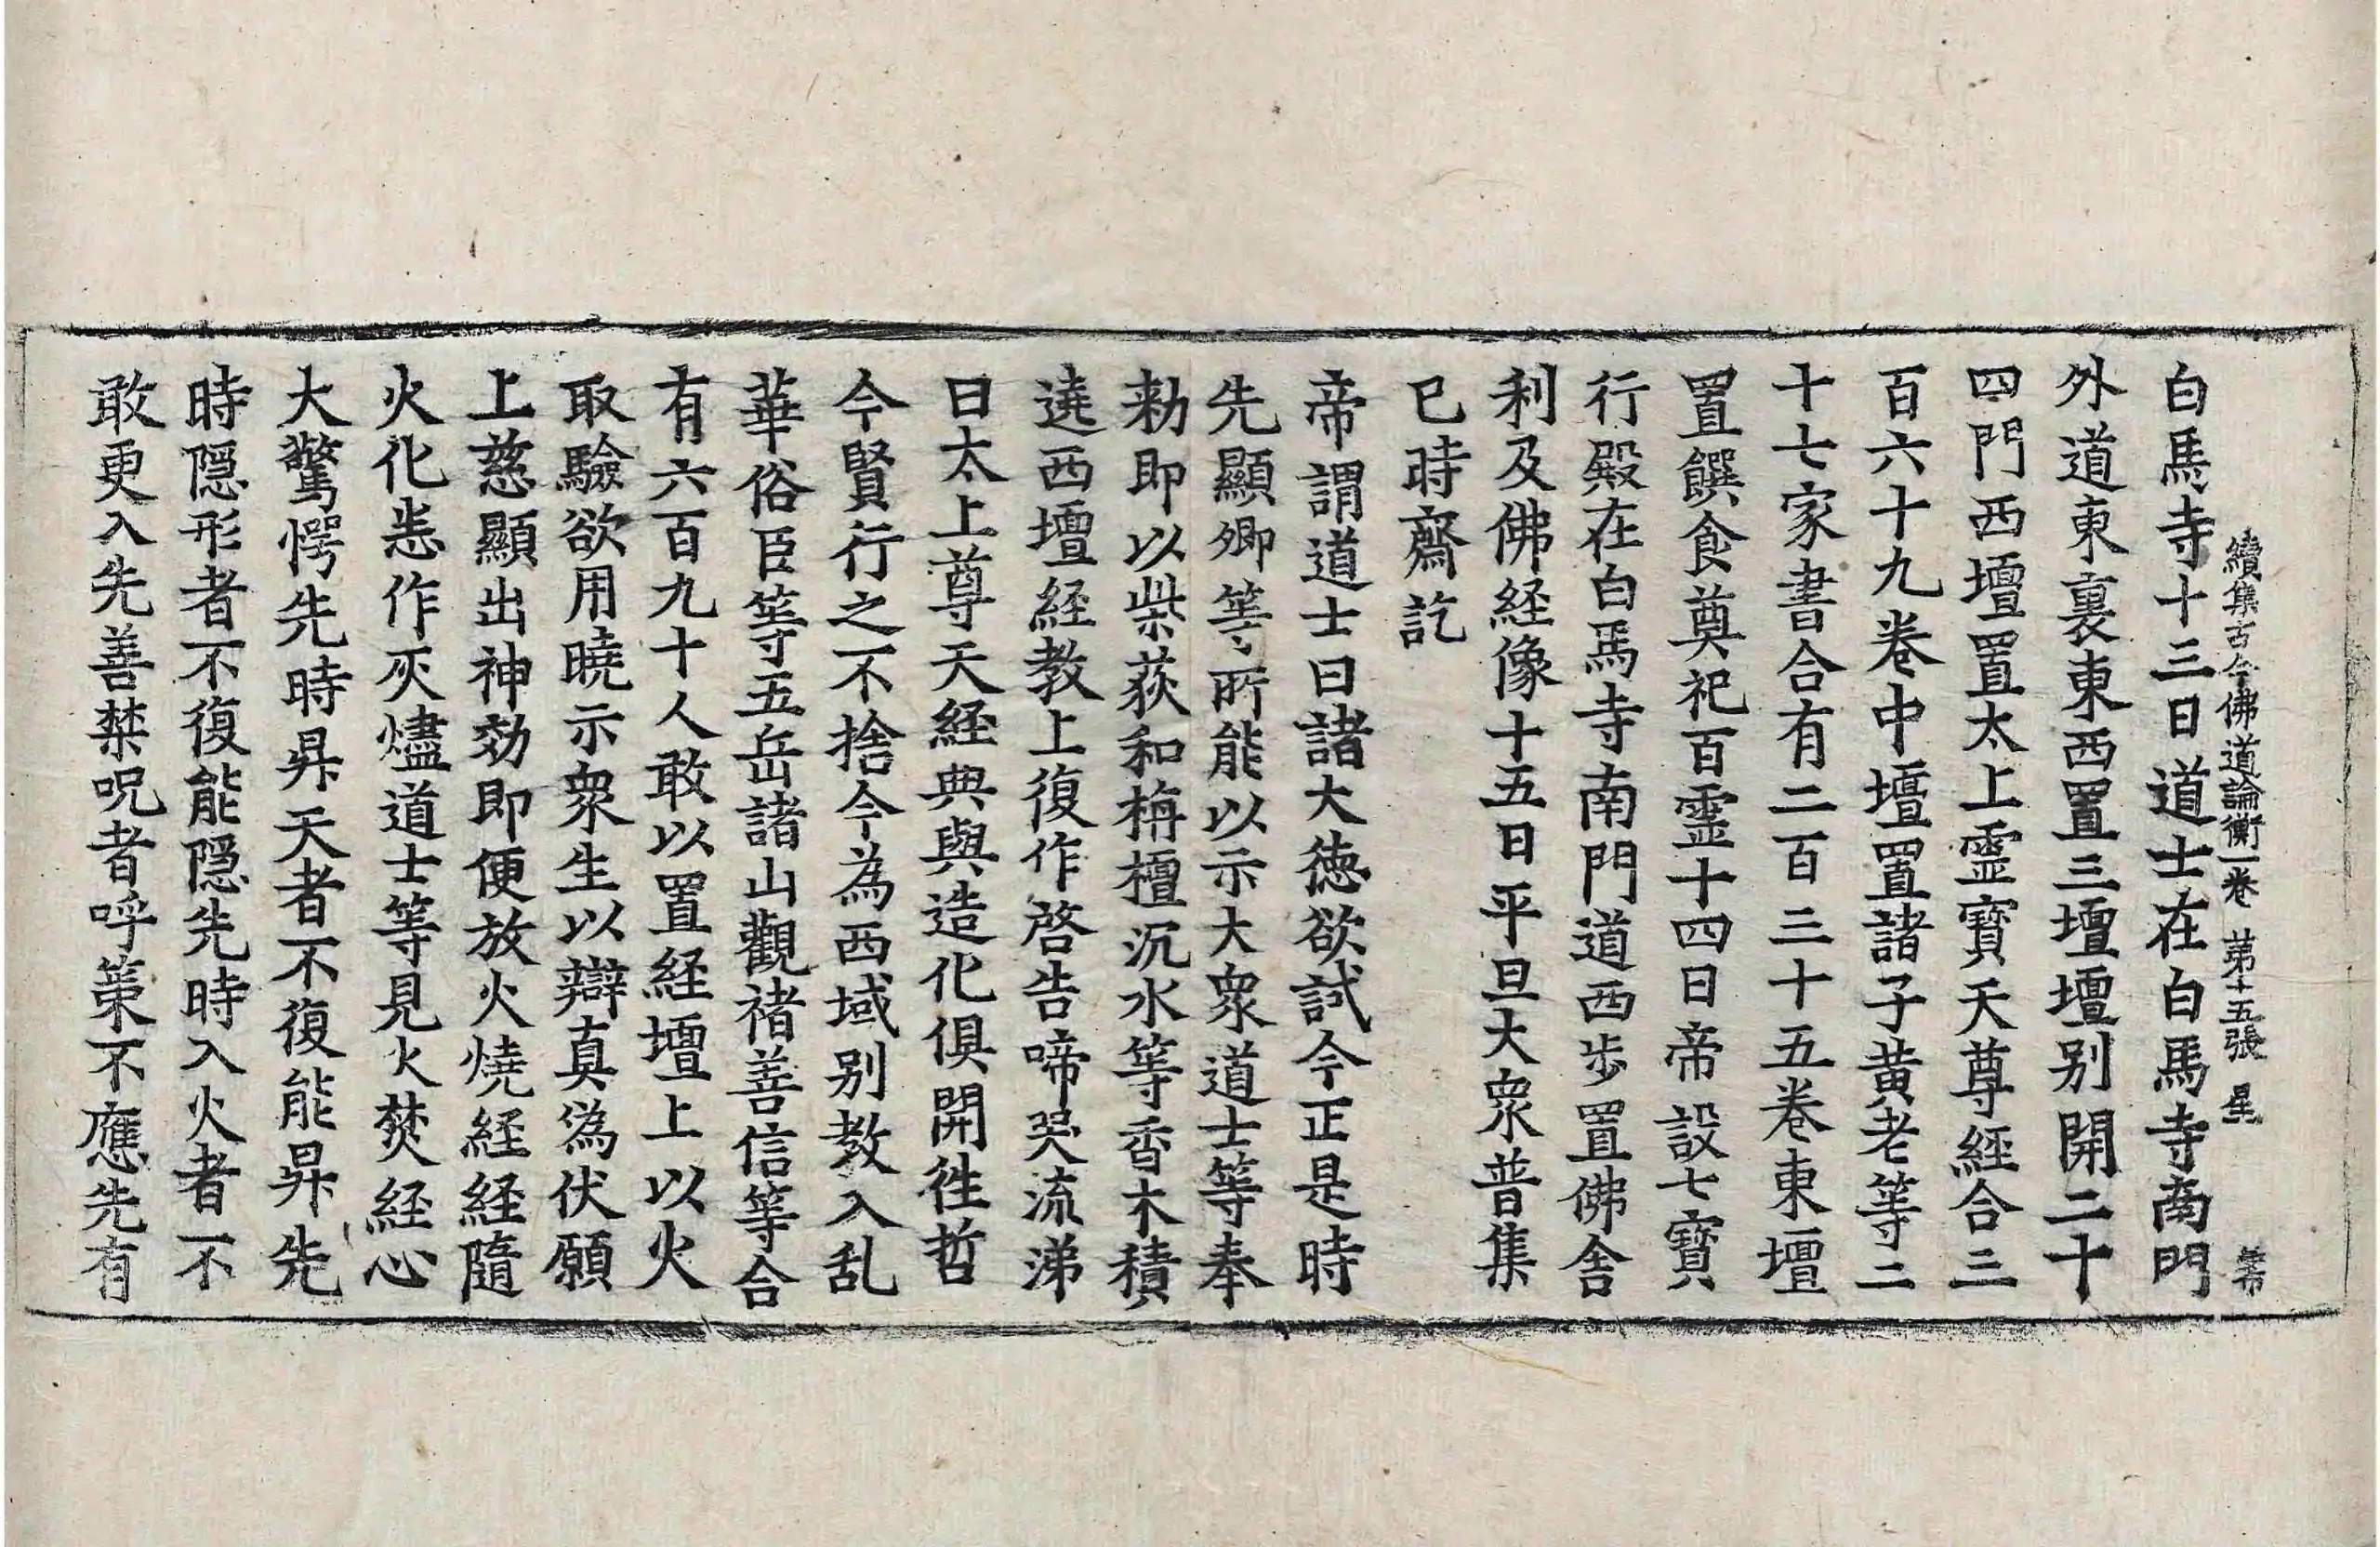 白馬寺十三日道士在白馬寺南門
續集古今佛道論衡一卷 苐十五張 星
外道東裏東西置三壇壇别開二十
四門西壇置太上靈寶天尊経合三
百六十九卷中壇置諸子黄老等二
十七家書合有二百三十五卷東壇
置饌食奠祀百靈十四日帝設七寶
行殿在白馬寺南門道西步置佛舎
利及佛経像十五日平旦大衆普集
已時齋訖
帝謂道士曰諸大徳欲試今正是時
先顯卿等所能以示大衆道士等奉
勑即以柴荻和栴檀沉水等香木積
遶西壇経教上復作啓告啼哭流涕
曰太上尊天経典與造化俱開徃哲
今賢行之不捨今為西域别教入乱
華俗臣等五岳諸山觀禇善信等合
有六百九十人敢以置経壇上以火
取驗欲用曉示衆生以辯真偽伏願
上慈顯出神効即便放火燒経経隨
火化恙作灰燼道士等見火焚経心
大驚愕先時昇天者不復能昇先
時隠形者不復能隠先時入火者不
敢更入先善禁呪者呼策不應先有